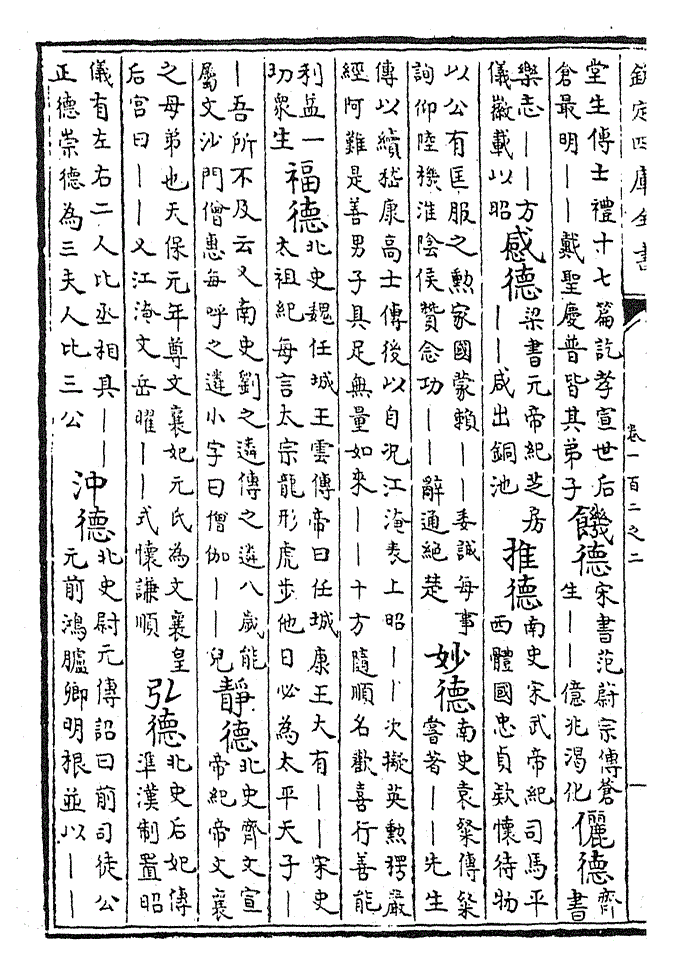 欽定四庫全書
卷一百二之二
堂生傳士禮十七篇訖孝宣世后
倉最明——戴聖慶普皆其弟子
饑德
宋書范蔚宗傳蒼
生——億兆渴化
儷德
齊
書
樂志——方
儀徽載以昭
感德
梁書元帝紀芝房
——咸出銅池
推德
南史宋武帝紀司馬平
西體國忠貞款懷待物
以公有匡服之勲家國蒙賴——委誠每事
詢仰陸機淮陰侯贊念功——辭通絶楚
妙德
南史袁粲傳粲
嘗著——先生
傳以續嵇康高士傳後以自况江淹表上昭——次擬英勲楞嚴
經阿難是善男子具足無量如來——十方隨順名歡喜行善能
利益一
切衆生
福德
北史魏任城王雲傳帝曰任城康王大有——宋史
太祖紀每言太宗龍形虎步他日必為太平天子—
—吾所不及云又南史劉之遴傳之遴八歲能
屬文沙門僧惠每呼之遴小字曰僧伽——兒
靜德
北史齊文宣
帝紀帝文襄
之母弟也天保元年尊文襄妃元氏為文襄皇
后宮曰——又江淹文岳曜——式懷謙順
弘德
北史后妃傳
準漢制置昭
儀有左右二人比丞相其——
正德崇德為三夫人比三公
沖德
北史尉元傳詔曰前司徒公
元前鴻臚卿明根並以——